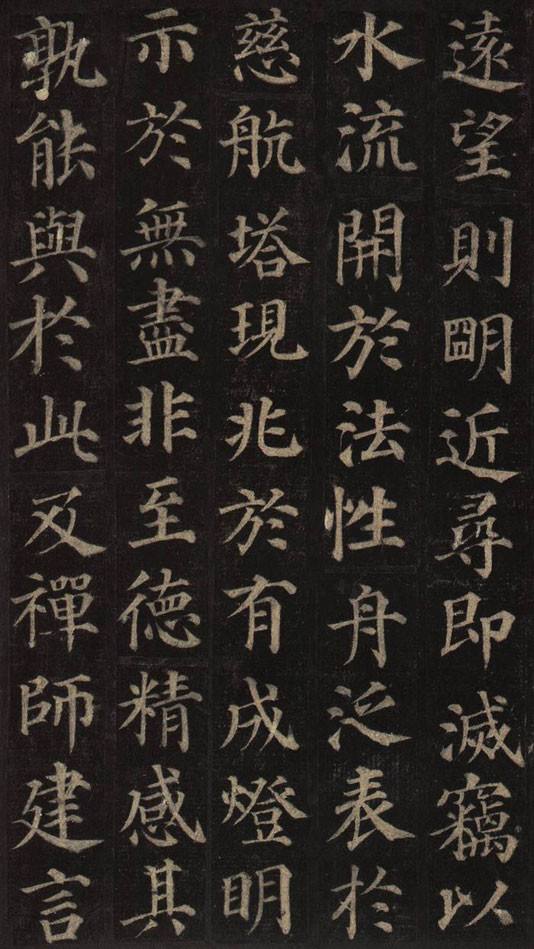 遠望則朙近尋即滅竊以
水流開於法性舟泛表於
慈航塔現兆於有成燈朙
示於無盡非至德精感其
孰能與於此及禪師建言